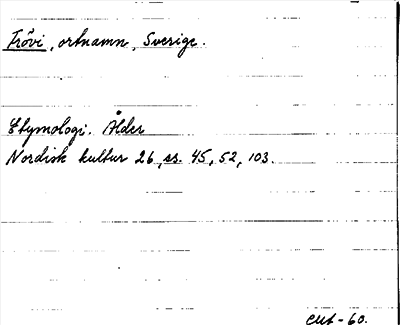 Frövi, ortnamn, Sverige.
Etymologi. Ålder
Nordisk kultur 26, ss. 45, 52, 103.